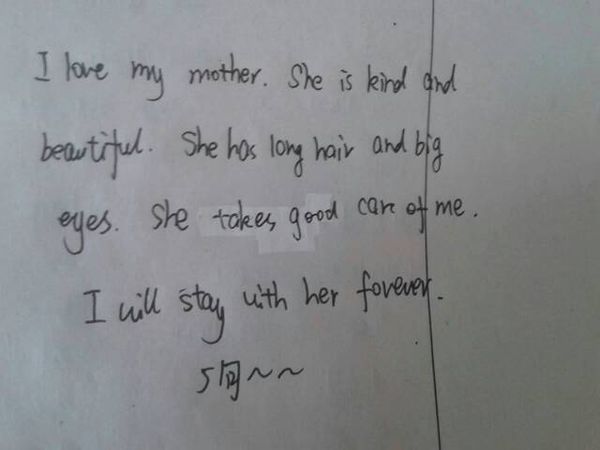 I love my mother. She is kind and
beautiful. She has long hair and big
eyes. She takes good care of me.
I will stay with her forever.
5回~~